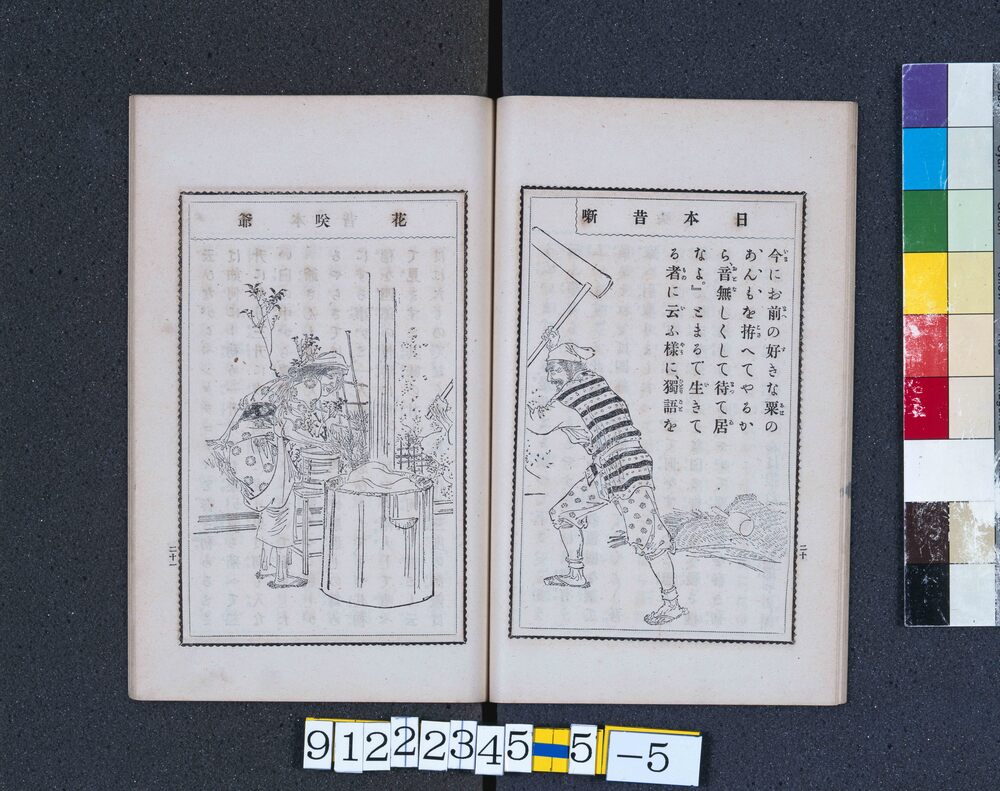 日本昔噺
今にお前の好きな粟の
あんもを拵へてやるか
ら音無しくして待て居
なよ。』とまるで生きて
る者に云ふ様に、獨語を
二十
花咲爺
二十一
91222345-5-5